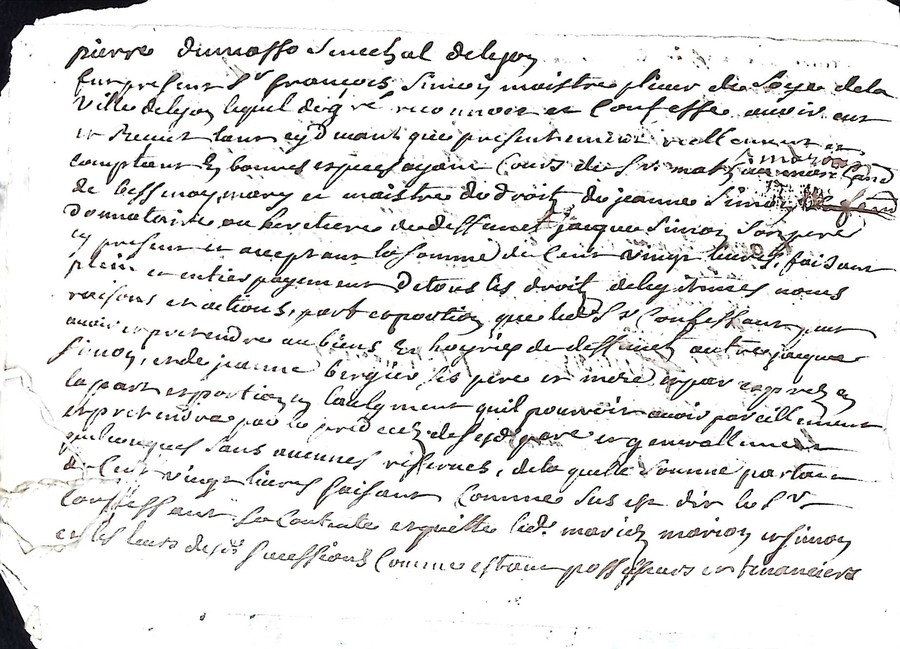 pierre dumasso Senechal delyon
fut present Sr françois Simon maistre plieur de Soye de la
Ville de lyon lequel de gré reconnoit et Confesse avoir eut
et Receut tant cyd'mant que presentement reellement et
comptant En bonnes espesses ayant Cours de Sr
de bessenoy mary et maistre de droitz de jeanne Simon
Donnataire ou heritiere de deffunct jacque Simon Son pere
cy present et acceptant la Somme de Cent vingt livres, faisant
plein et entier payement De tous les droitz delegitimes noms
raisons et actions, part et portion que led. Sr Confessant peut
avoir et pretendre au biens Et hoyries de deffunct autre jacque
Simon, et de jeanne bergier Ses pere et mere et par exprez en
la part et portion en l'augment qu'il pourroit avoir pareillement
et pretendre par le predecez de sesd. pere et generallement
quelconques Sans aucunes reserves, de la quelle Somme partant
de Cent vingt livres faisant Comme Sus est dit le Sr
Confessant Se Contente et quitte led. mariez et Simon
et les leurs desd. Sucessions Comme estant possesseurs et tenanciers